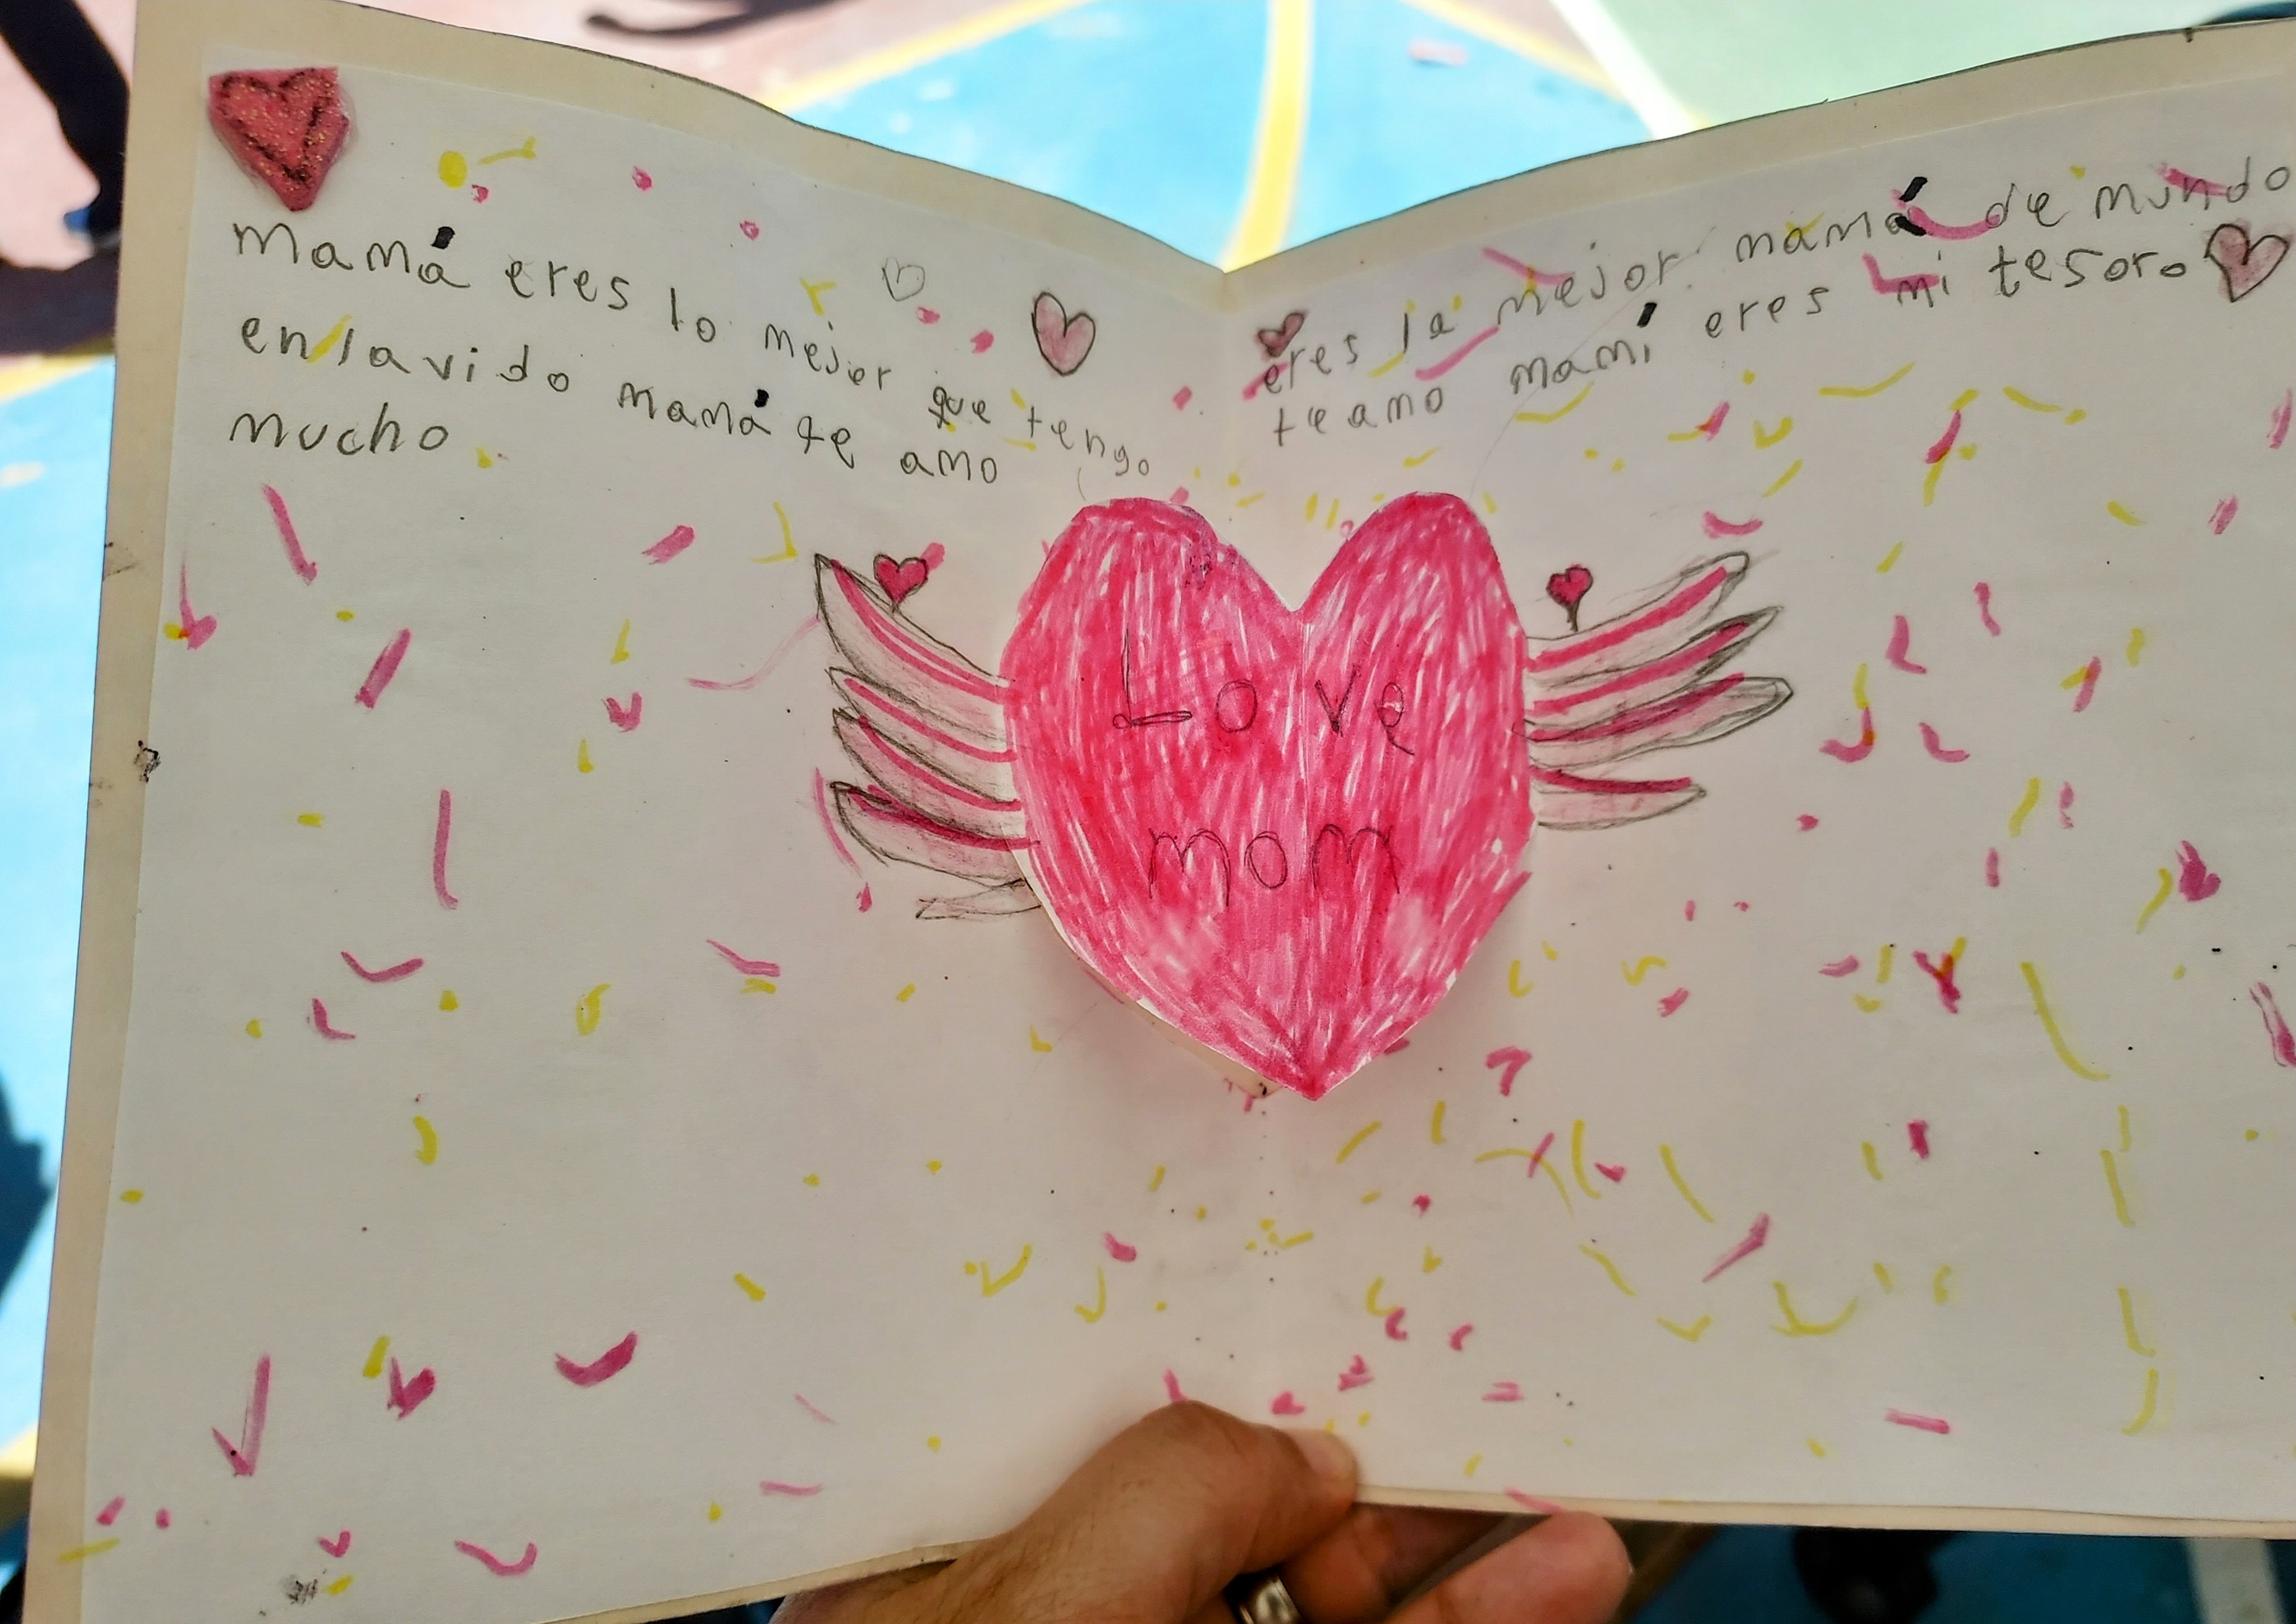 mamá eres lo mejor que tengo
en la vido mamá te amo
mucho
eres la mejor mamá de mundo
te amo mamí eres mi tesoro
Love
mom